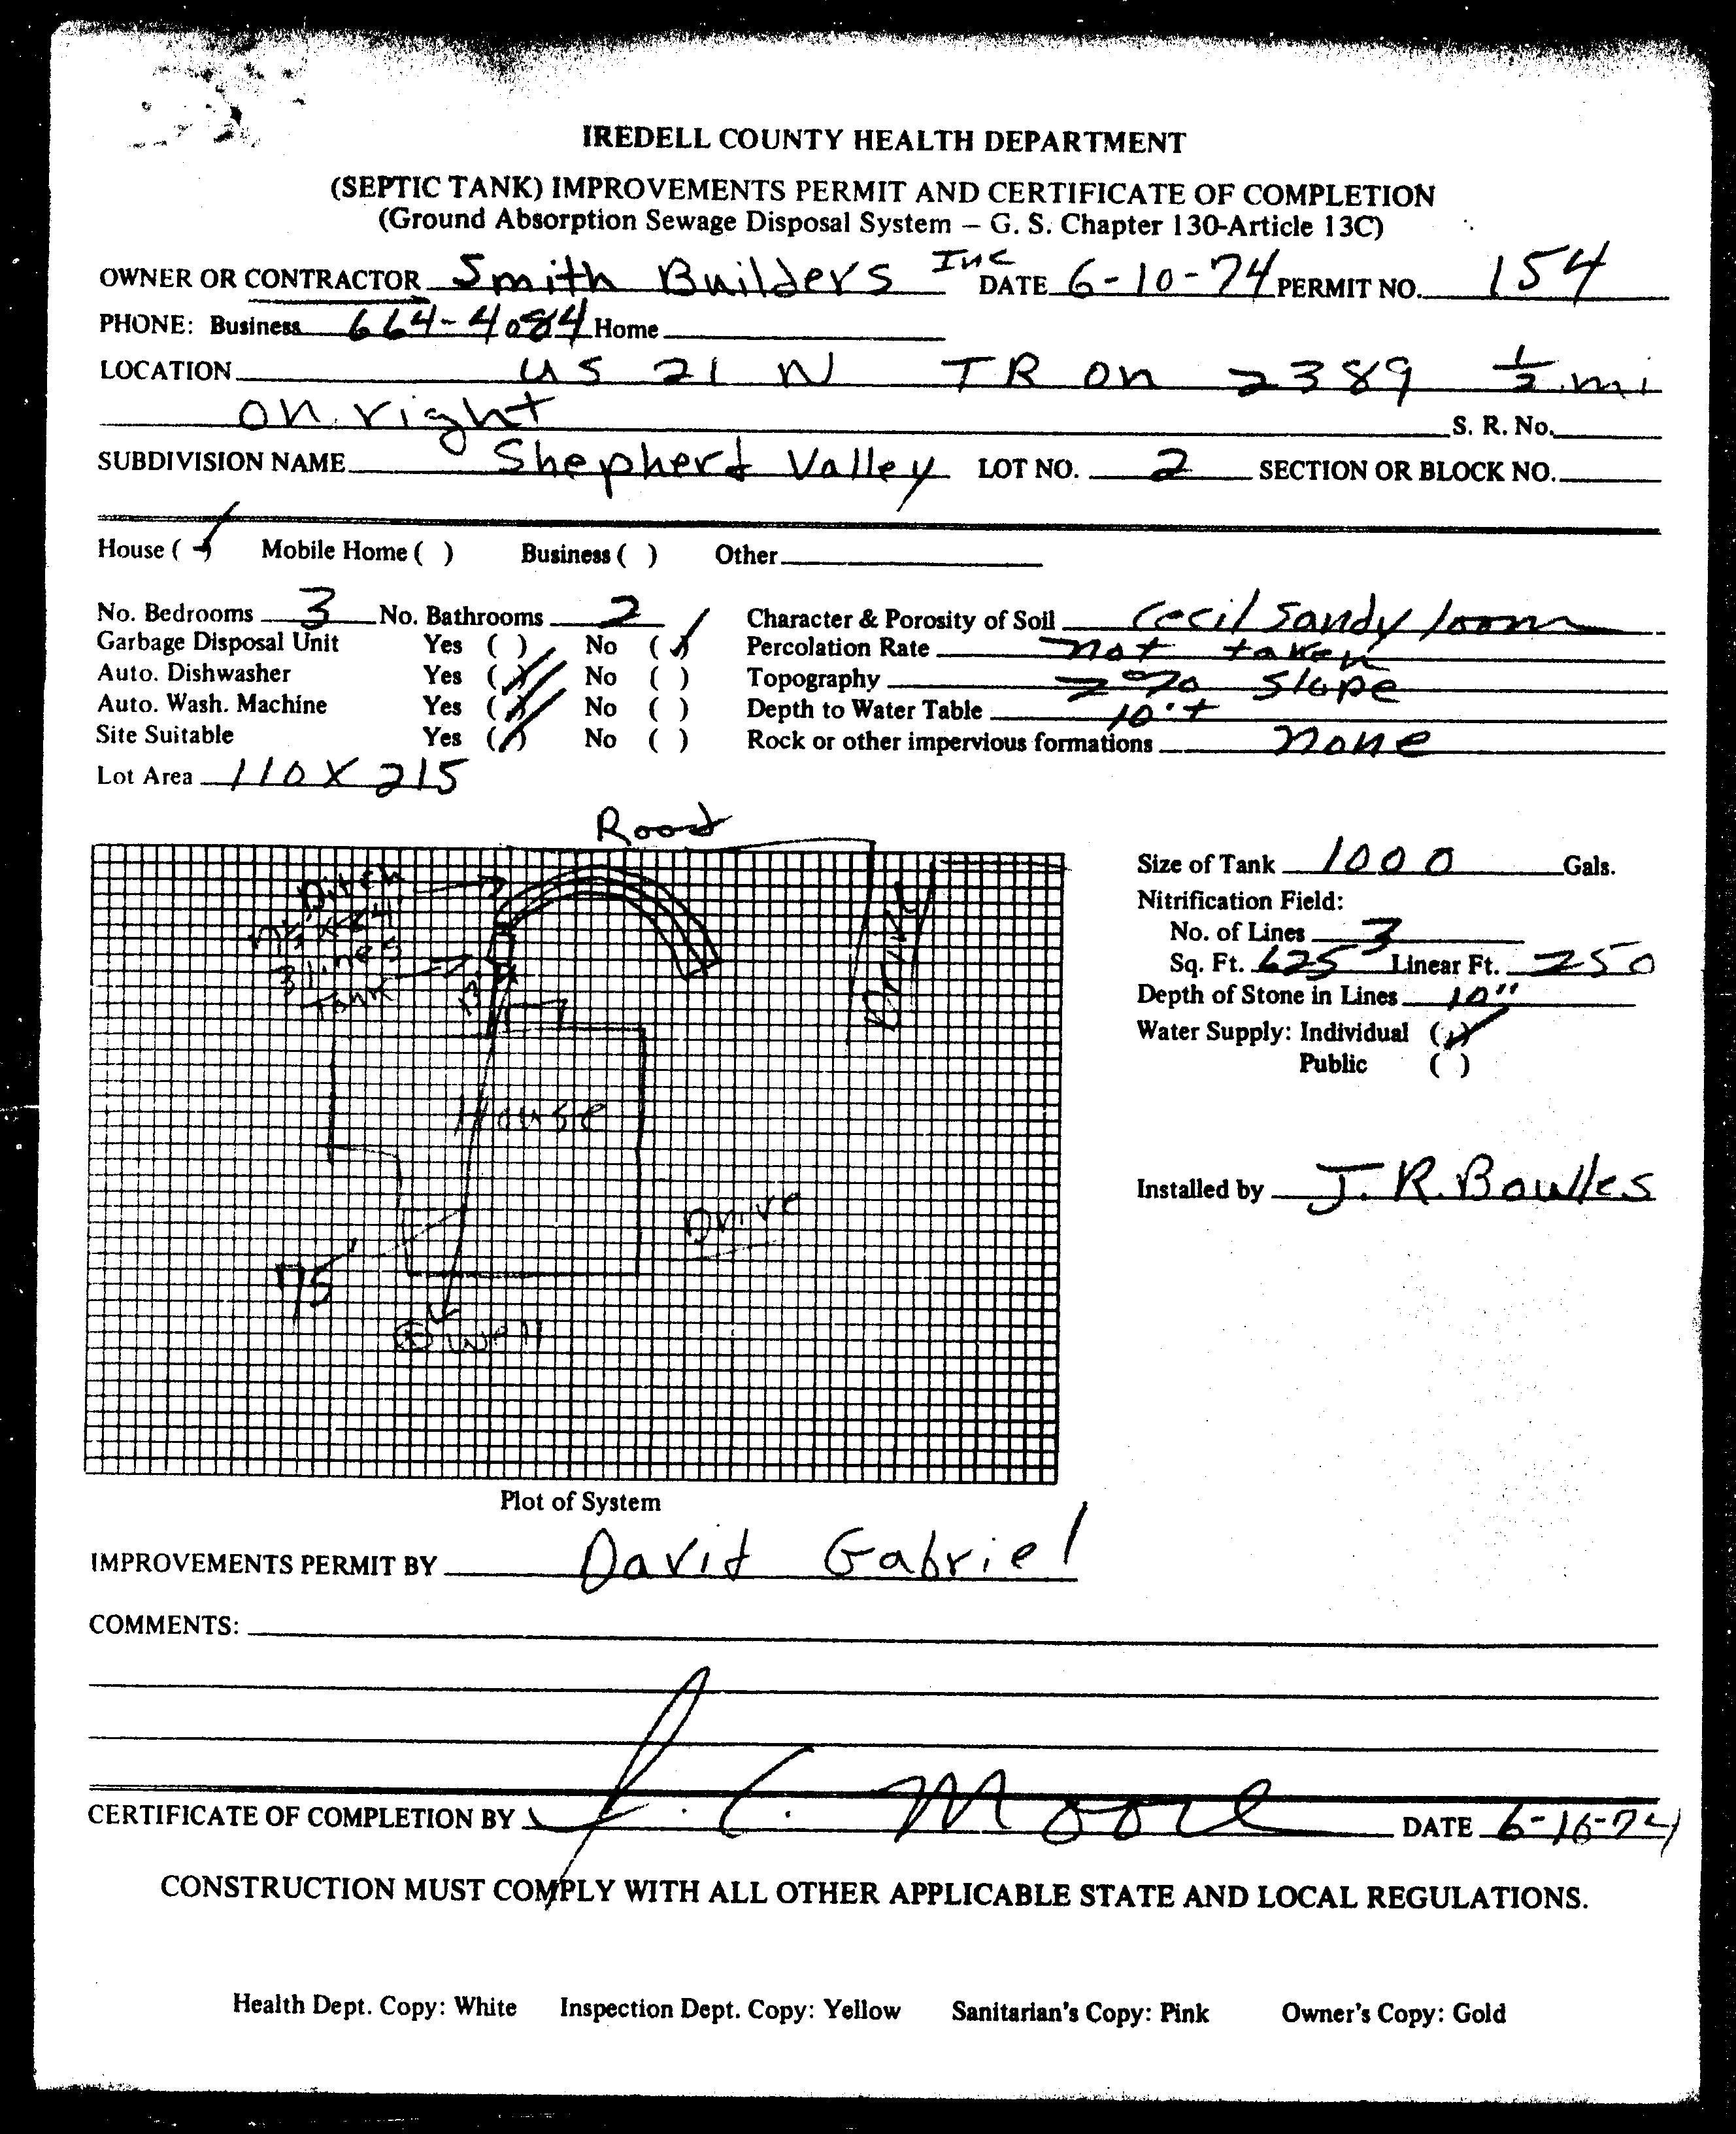 IREDELL COUNTY HEALTH DEPARTMENT
(SEPTIC TANK) IMPROVEMENTS PERMIT AND CERTIFICATE OF COMPLETION
(Ground Absorption Sewage Disposal System – G. S. Chapter 130-Article 13C)
OWNER OR CONTRACTOR Smith Builders Inc DATE 6-10-74 PERMIT NO. 154
PHONE: Business 664-4084 Home
LOCATION US 21 N TR on 2389 1/2 mi
on right S. R. No.
SUBDIVISION NAME Shepherd Valley LOT NO. 2 SECTION OR BLOCK NO.
House (✓) Mobile Home ( ) Business ( ) Other
No. Bedrooms 3 No. Bathrooms 2 Character & Porosity of Soil Cecil Sandy loam
Garbage Disposal Unit Yes ( ) No (✓) Percolation Rate not taken
Auto. Dishwasher Yes (✓) No ( ) Topography 2% Slope
Auto. Wash. Machine Yes (✓) No ( ) Depth to Water Table 10'+
Site Suitable Yes (✓) No ( ) Rock or other impervious formations none
Lot Area 110 X 215
Road
Size of Tank 1000 Gals.
Nitrification Field:
No. of Lines 3
Sq. Ft. 625 Linear Ft. 250
Depth of Stone in Lines 10"
Water Supply: Individual (✓)
Public ( )
Ditch
3 lines
Tank
Drive
House
Drive
75'
Well
Installed by J. R. Bowles
Plot of System
IMPROVEMENTS PERMIT BY David Gabriel
COMMENTS:
CERTIFICATE OF COMPLETION BY J. C. Moore DATE 6-16-74
CONSTRUCTION MUST COMPLY WITH ALL OTHER APPLICABLE STATE AND LOCAL REGULATIONS.
Health Dept. Copy: White Inspection Dept. Copy: Yellow Sanitarian's Copy: Pink Owner's Copy: Gold